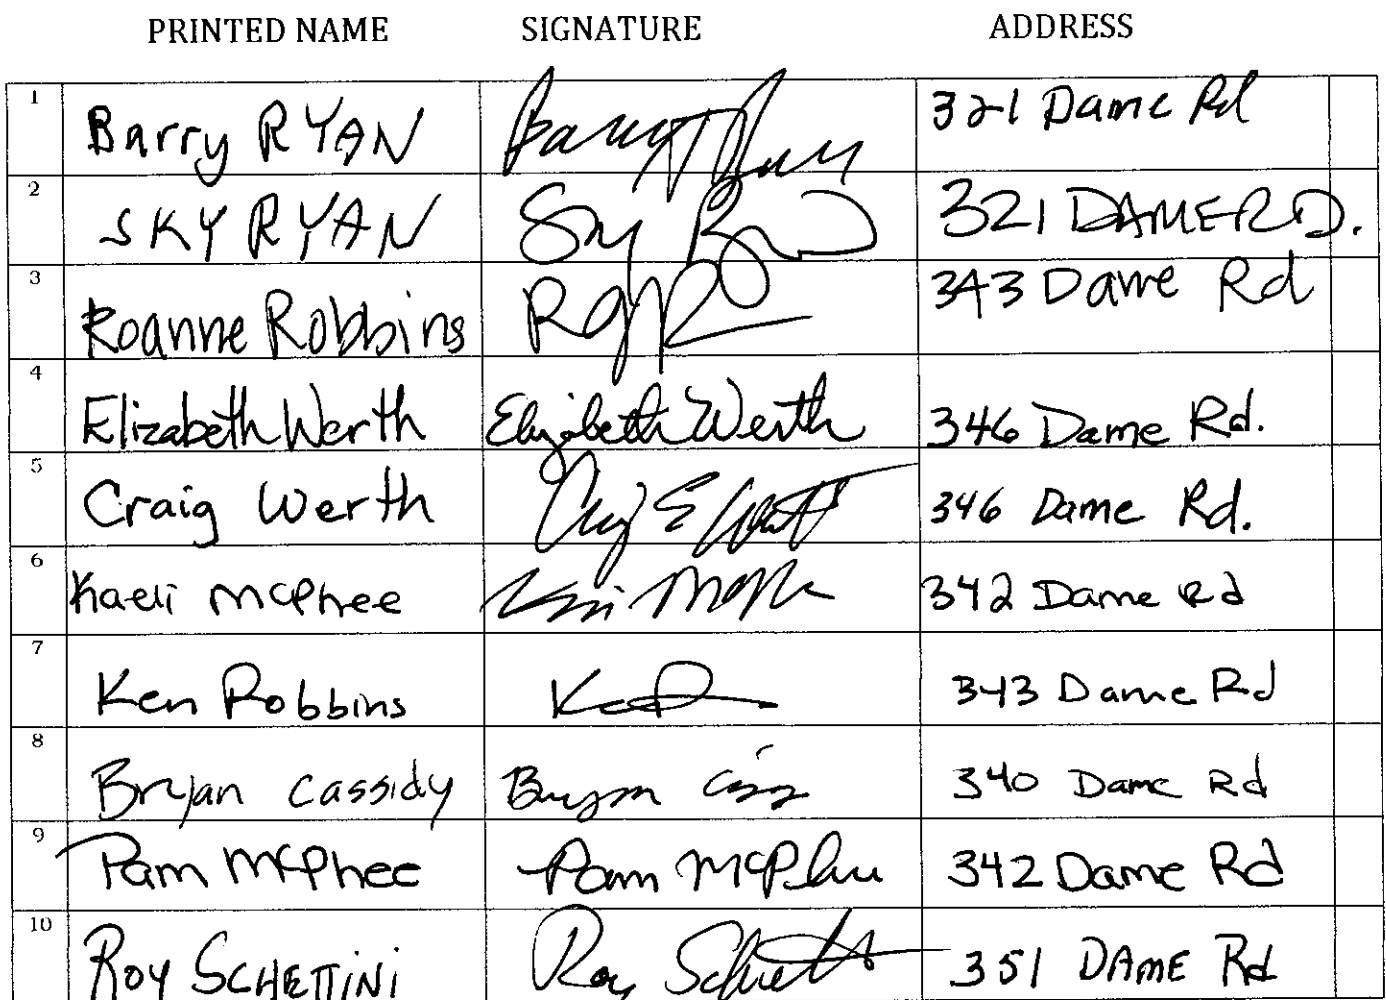 PRINTED NAME SIGNATURE ADDRESS
1 Barry RYAN Barry Ryan 321 Dame Rd
2 SKY RYAN Sky R 321 DAME RD.
3 Roanne Robbins R 343 Dame Rd
4 Elizabeth Werth Elizabeth Werth 346 Dame Rd.
5 Craig Werth Craig E Werth 346 Dame Rd.
6 Kaeli McPhee 342 Dame Rd
7 Ken Robbins 343 Dame Rd
8 Bryan Cassidy Bryan 340 Dame Rd
9 Pam McPhee Pam McPhee 342 Dame Rd
10 ROY SCHETTINI Roy Schettini 351 DAME Rd